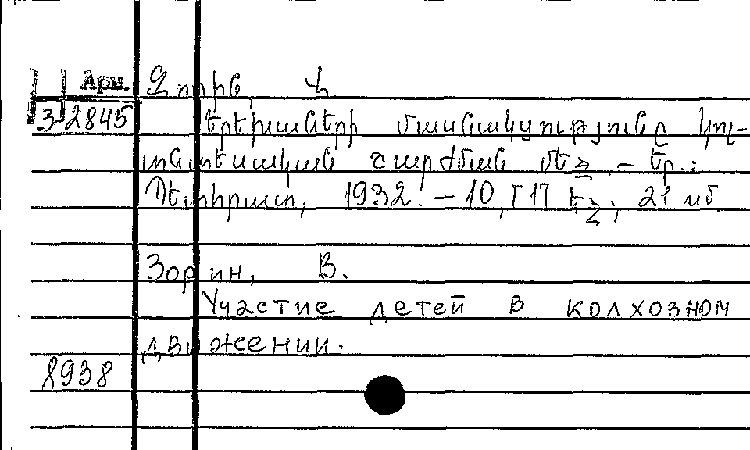 Арм. Զորին, Վ.
3-2845 Երեխաների մասնակցությունը կոլ-
տնտեսական շարժման մեջ. — Եր.:
Պետհրատ, 1932. — 10, [1] էջ; 21 սմ
Зорин, В.
Участие детей в колхозном
движении.
8938